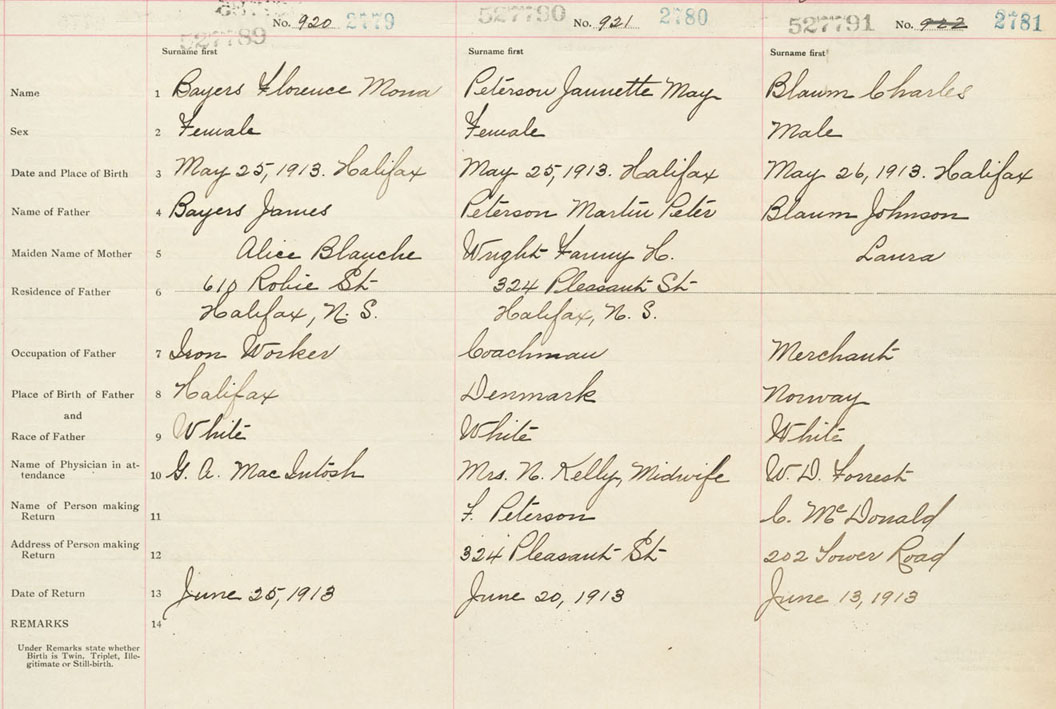 No. 920 2779 527790 No. 921 2780 527791 No. 922 2781
527789
Surname first Surname first Surname first
Name 1 Bayers Florence Mona Peterson Jannette May Blaum Charles
Sex 2 Female Female Male
Date and Place of Birth 3 May 25, 1913. Halifax May 25, 1913. Halifax May 26, 1913. Halifax
Name of Father 4 Bayers James Peterson Martin Peter Blaum Johnson
Maiden Name of Mother 5 Alice Blanche Wright Fanny H. Laura
Residence of Father 6 610 Robie St 324 Pleasant St
Halifax, N. S. Halifax, N. S.
Occupation of Father 7 Iron Worker Coachman Merchant
Place of Birth of Father 8 Halifax Denmark Norway
and
Race of Father 9 White White White
Name of Physician in at-
tendance 10 G. A. MacIntosh Mrs. N. Kelly, Midwife W. D. Forrest
Name of Person making
Return 11 F. Peterson C. McDonald
Address of Person making
Return 12 324 Pleasant St 202 Tower Road
Date of Return 13 June 25, 1913 June 20, 1913 June 13, 1913
REMARKS 14
Under Remarks state whether
Birth is Twin, Triplet, Ille-
gitimate or Still-birth.